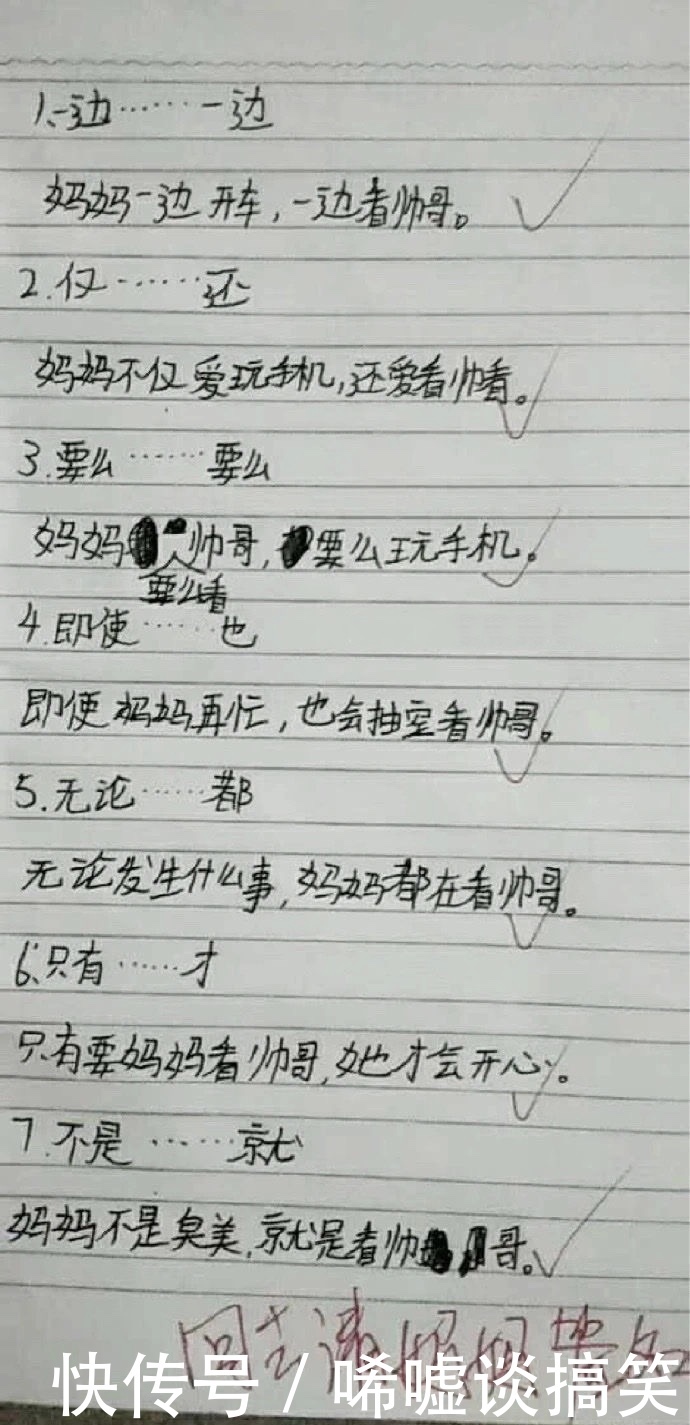 1.一边……一边
妈妈一边开车,一边看帅哥。
2.仅……还
妈妈不仅爱玩手机,还爱看帅看。
3.要么……要么
妈妈帅哥,要么玩手机。
要么看
4.即使……也
即使妈妈再忙,也会抽空看帅哥。
5.无论……都
无论发生什么事,妈妈都在看帅哥。
6.只有……才
只有要妈妈看帅哥,她才会开心。
7.不是……就
妈妈不是臭美,就是看帅哥。
回去请妈妈签名
快传号/唏嘘谈搞笑